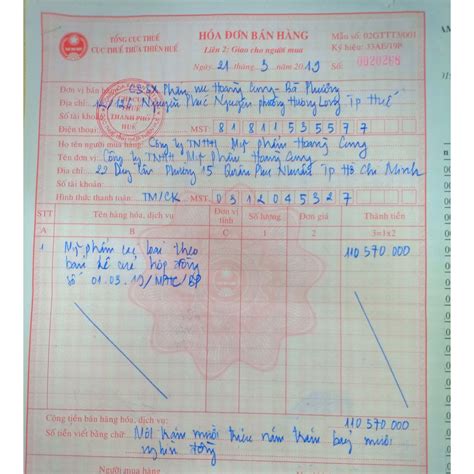 TỔNG CỤC THUẾ
CỤC THUẾ THỪA THIÊN HUẾ
HÓA ĐƠN BÁN HÀNG
Liên 2: Giao cho người mua
Ngày 21 tháng 3 năm 2019
Mẫu số: 02GTTT3/001
Ký hiệu: 33AB/19P
Số: 0020268
Đơn vị bán hàng: CSSX Phấn nụ Hoàng Cung - Bà Phường
Địa chỉ: Nguyễn Phúc Nguyên, phường Hương Long, Tp Huế
Số tài khoản
Điện thoại: MST: 8181135577
Họ tên người mua hàng: Công ty TNHH Mỹ phẩm Hoàng Cung
Tên đơn vị: Công ty TNHH Mỹ phẩm Hoàng Cung
Địa chỉ: 22 Duy Tân Phường 15 Quận Phú Nhuận Tp Hồ Chí Minh
Số tài khoản:
Hình thức thanh toán: TM/CK MST: 0312045327
STT Tên hàng hóa, dịch vụ Đơn vị tính Số lượng Đơn giá Thành tiền
A B C 1 2 3=1x2
1 Mỹ phẩm các loại theo 110 570 000
bản kê của hợp đồng
số 01.03.19/
Cộng tiền bán hàng hóa, dịch vụ: 110 570 000
Số tiền viết bằng chữ: Một trăm mười triệu năm trăm bảy mươi
nghìn đồng
Người mua hàng